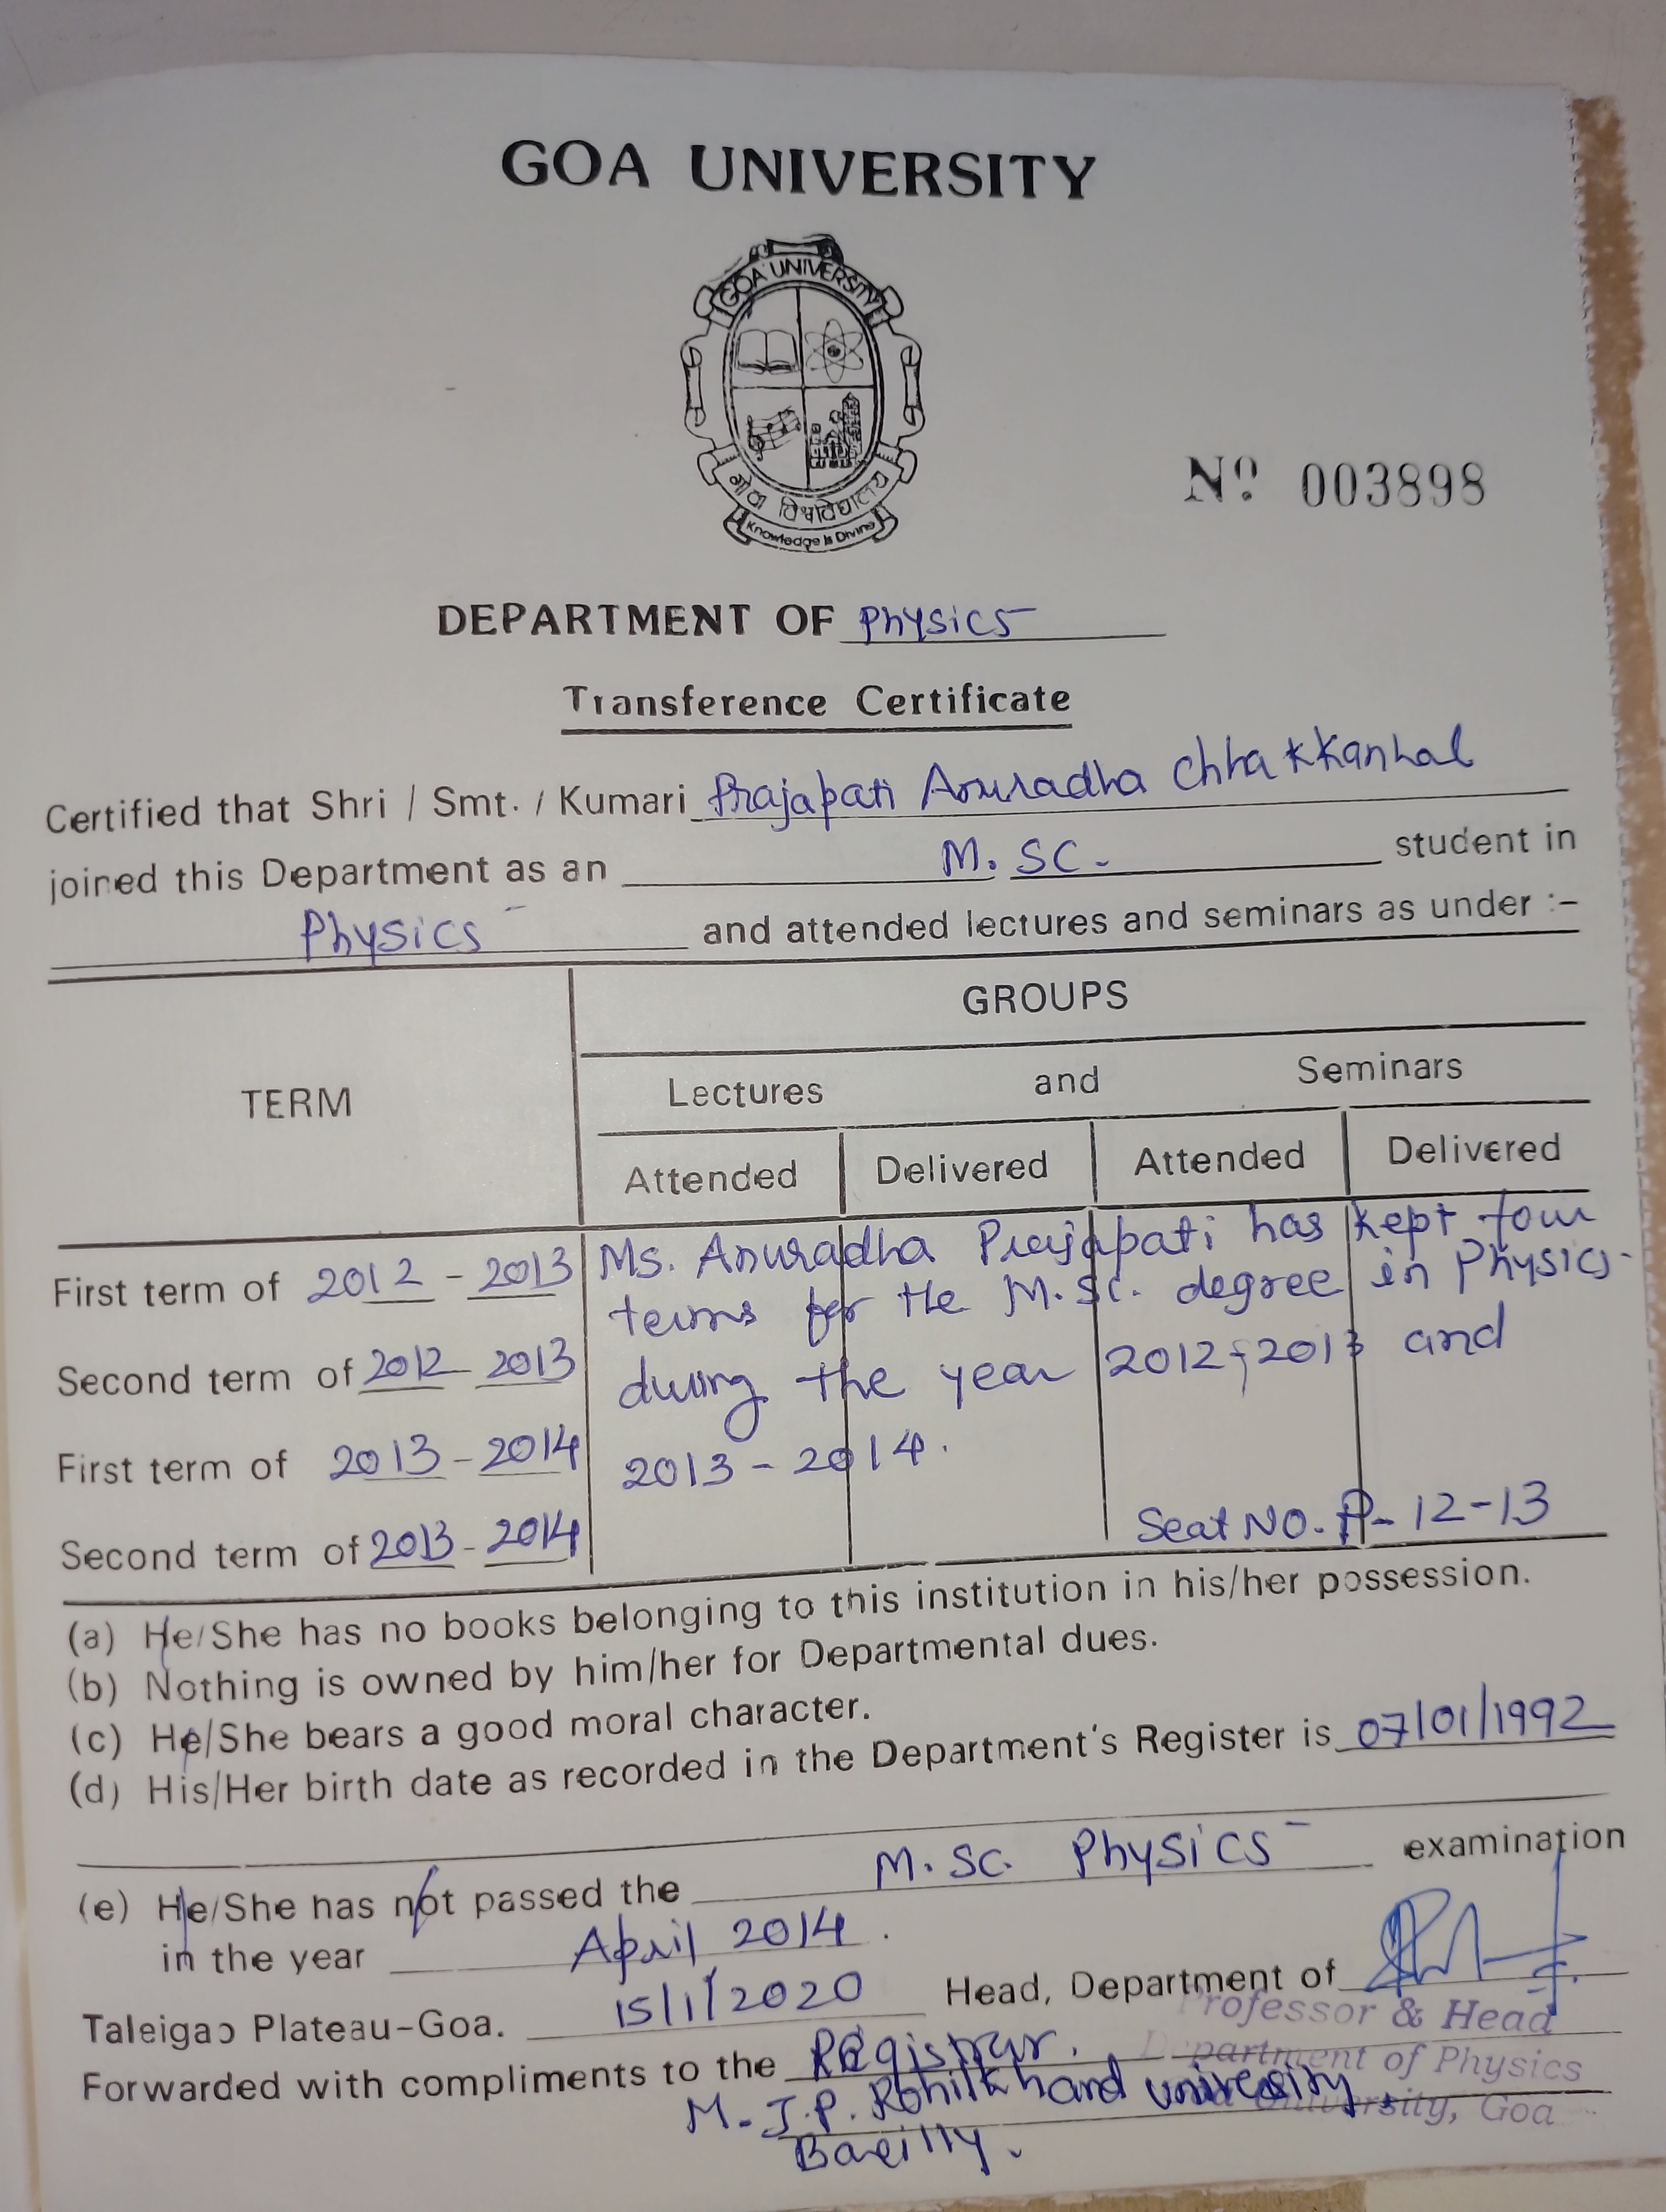 GOA UNIVERSITY
GOA UNIVERSITY
गोवा विश्वविद्यालय
Knowledge is Divine
Nº 003898
DEPARTMENT OF Physics
Transference Certificate
Certified that Shri / Smt. / Kumari Prajapati Anuradha Chhakkanhal
joined this Department as an M. SC. student in
Physics and attended lectures and seminars as under :-
GROUPS
TERM
Lectures and Seminars
Attended Delivered Attended Delivered
First term of 2012 - 2013
Second term of 2012 - 2013
First term of 2013 - 2014
Second term of 2013 - 2014
Ms. Anuradha Prajapati has kept four
terms for the M.Sc. degree in Physics
during the year 2012-2013 and
2013 - 2014.
Seat NO. P- 12-13
(a) He/She has no books belonging to this institution in his/her possession.
(b) Nothing is owned by him/her for Departmental dues.
(c) He/She bears a good moral character.
(d) His/Her birth date as recorded in the Department's Register is 07/01/1992
(e) He/She has not passed the M. SC. Physics examination
in the year April 2014.
Taleigao Plateau-Goa. 15/1/2020 Head, Department of
Professor & Head
Department of Physics
University, Goa
Forwarded with compliments to the Registrar.
M. J.P. Rohilkhand University,
Bareilly.